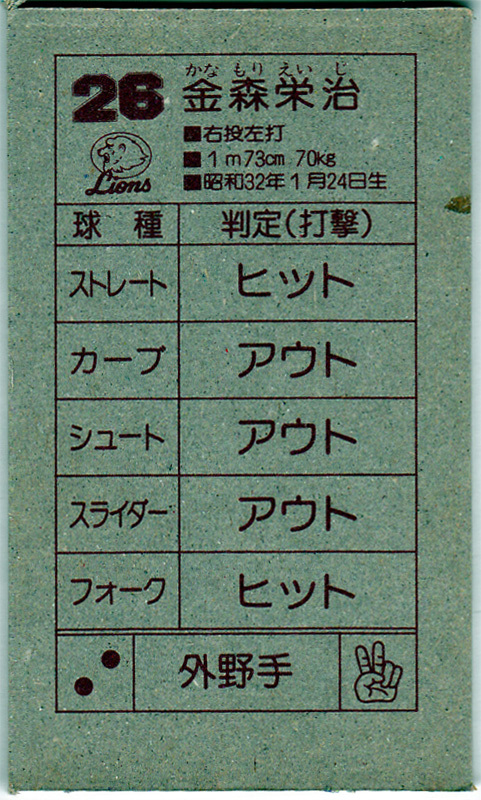 26
かな もり えい じ
金森栄治
■右投左打
■1m73cm 70kg
■昭和32年1月24日生
Lions
球種 判定(打撃)
ストレート ヒット
カーブ アウト
シュート アウト
スライダー アウト
フォーク ヒット
外野手